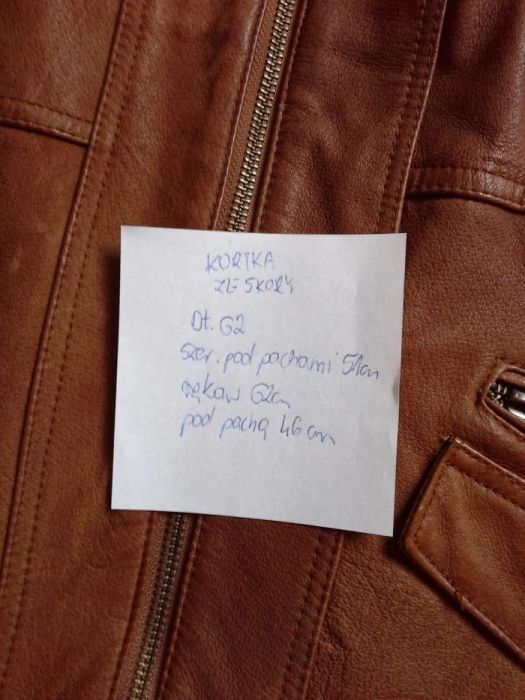 KURTKA
ZE SKÓRY
Dł. 62
szer. pod pachami 51cm
rękaw 62cm
pod pachą 46 cm